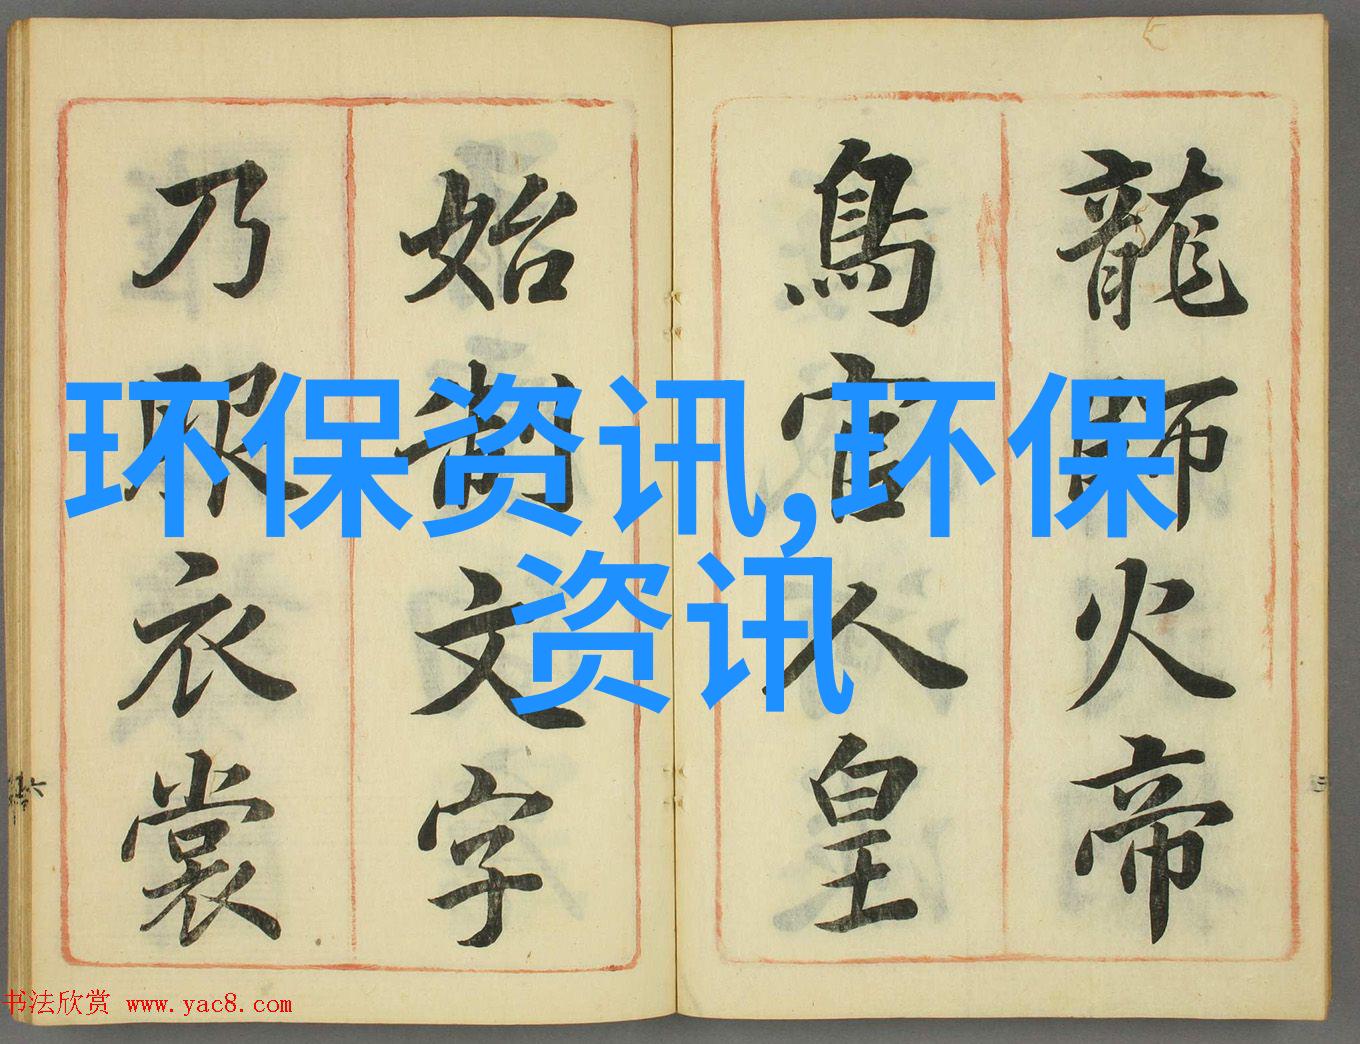 龍師火帝
鳥官人皇
始制文字
乃服衣裳
环保资讯,环保
资讯
书法欣赏 www.yac8.com